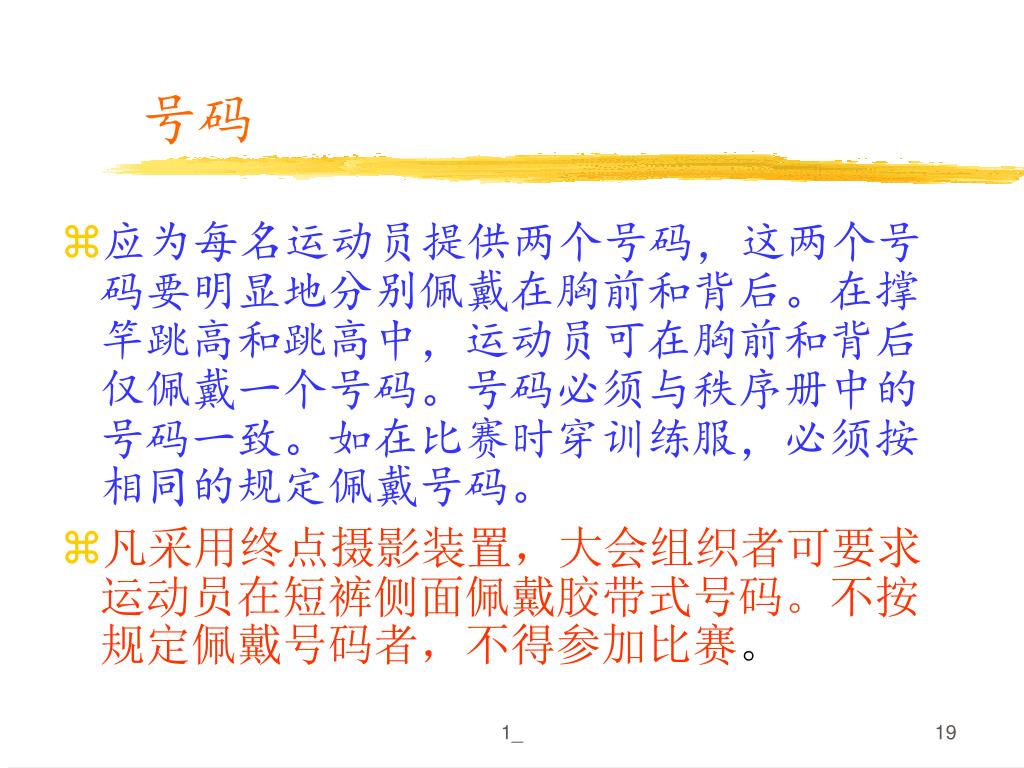 号码
⌘应为每名运动员提供两个号码，这两个号
码要明显地分别佩戴在胸前和背后。在撑
竿跳高和跳高中，运动员可在胸前和背后
仅佩戴一个号码。号码必须与秩序册中的
号码一致。如在比赛时穿训练服，必须按
相同的规定佩戴号码。
⌘凡采用终点摄影装置，大会组织者可要求
运动员在短裤侧面佩戴胶带式号码。不按
规定佩戴号码者，不得参加比赛。
1_
19